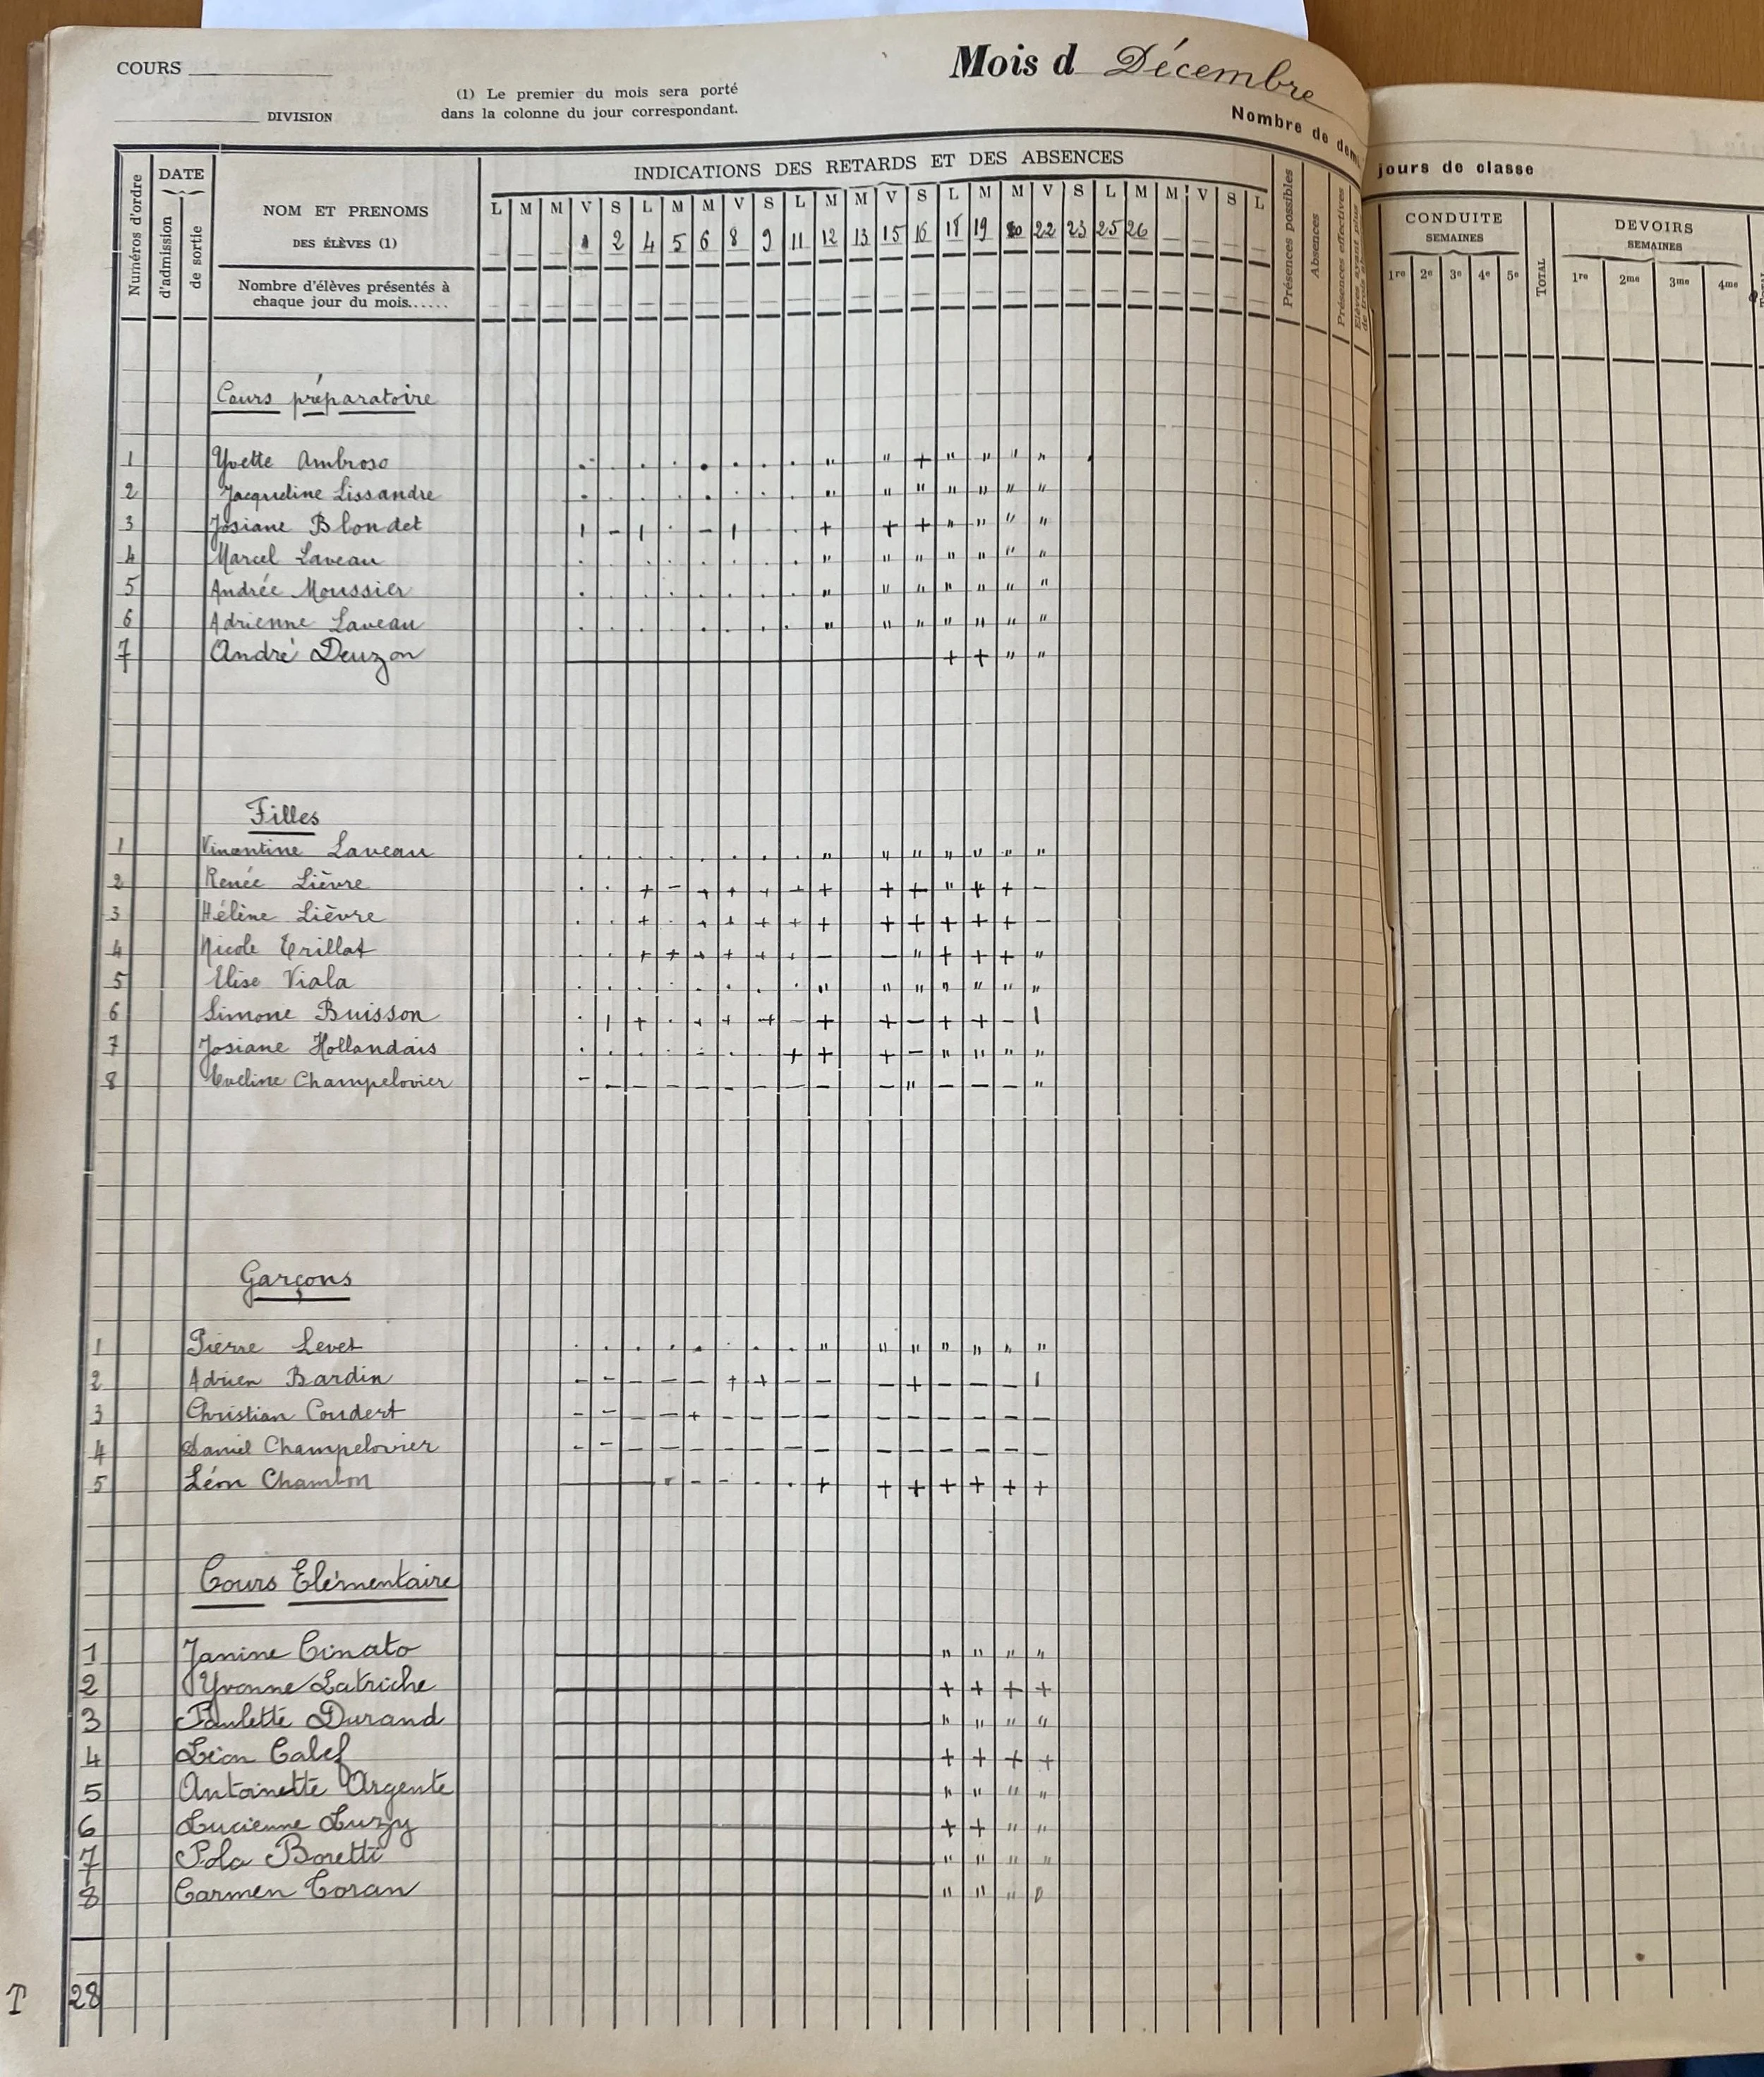 COURS
DIVISION
(1) Le premier du mois sera porté
dans la colonne du jour correspondant.
Mois d Décembre
Nombre de demi
jours de classe
Numéros d'ordre
DATE
d'admission
de sortie
NOM ET PRENOMS
DES ÉLÈVES (1)
Nombre d'élèves présentés à
chaque jour du mois......
INDICATIONS DES RETARDS ET DES ABSENCES
L M M V S L M M V S L M M V S L M M V S L M M V S L
1 2 4 5 6 8 9 11 12 13 15 16 18 19 20 22 23 25 26
Présences possibles
Absences
Présences effectives
Elèves ayant plus
CONDUITE
SEMAINES
1re 2e 3e 4e 5e
TOTAL
DEVOIRS
SEMAINES
1re 2me 3me 4me
TOTAL
Cours préparatoire
1 Yvette Ambroso . . . . . . . . " " + " " " "
2 Jacqueline Lissandre . . . . . . . . " " " " " " "
3 Josiane Blondet | - | . - | . . + + + " " " "
4 Marcel Laveau . . . . . . . . " " " " " " "
5 Andrée Moussier . . . . . . . . " " " " " " "
6 Adrienne Laveau . . . . . . . . " " " " " " "
7 André Deuzon + + " "
Filles
1 Laveau . . . . . . . . " " " " " " "
2 Renée Lièvre . . + - + + + + + + + " + + -
3 Hélène Lièvre . . + . + + + + + + + + + + -
4 Nicole Trillat . . + + + + + + - - " + + + "
5 Elise Viala . . . . . . . . " " " " " " "
6 Simone Buisson . | + . + + + - + + - + + - |
7 Josiane Hollandais . . . . . . . + + + - " " " "
8 Eveline Champelovier - - - - - - - - - - " - - - "
Garçons
1 Pierre Levet . . . . . . . . " " " " " " "
2 Adrien Bardin - - - - - + + - - - + - - - |
3 Christian Coudert - - - - + - - - - - - - - - -
4 Daniel Champelovier - - - - - - - - - - - - - - -
5 Léon Chambon - - . . + + + + + + +
Cours Elémentaire
1 Janine Cinato " " " "
2 Yvonne Latriche + + + +
3 Paulette Durand " " " "
4 Léon Calef + + + +
5 Antoinette Argente " " " "
6 Lucienne Luzy + + " "
7 Pola Boretti " " " "
8 Carmen Coran " " " "
T 28